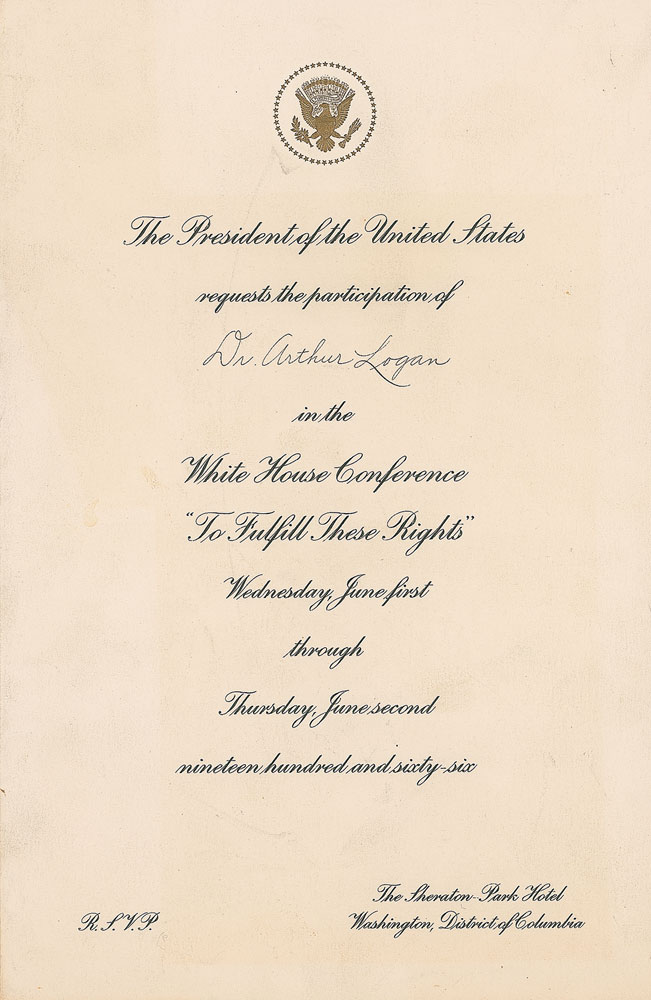 The President of the United States
requests the participation of
Dr. Arthur Logan
in the
White House Conference
"To Fulfill These Rights"
Wednesday, June first
through
Thursday, June second
nineteen hundred and sixty-six
The Sheraton-Park Hotel
R.S.V.P.
Washington, District of Columbia